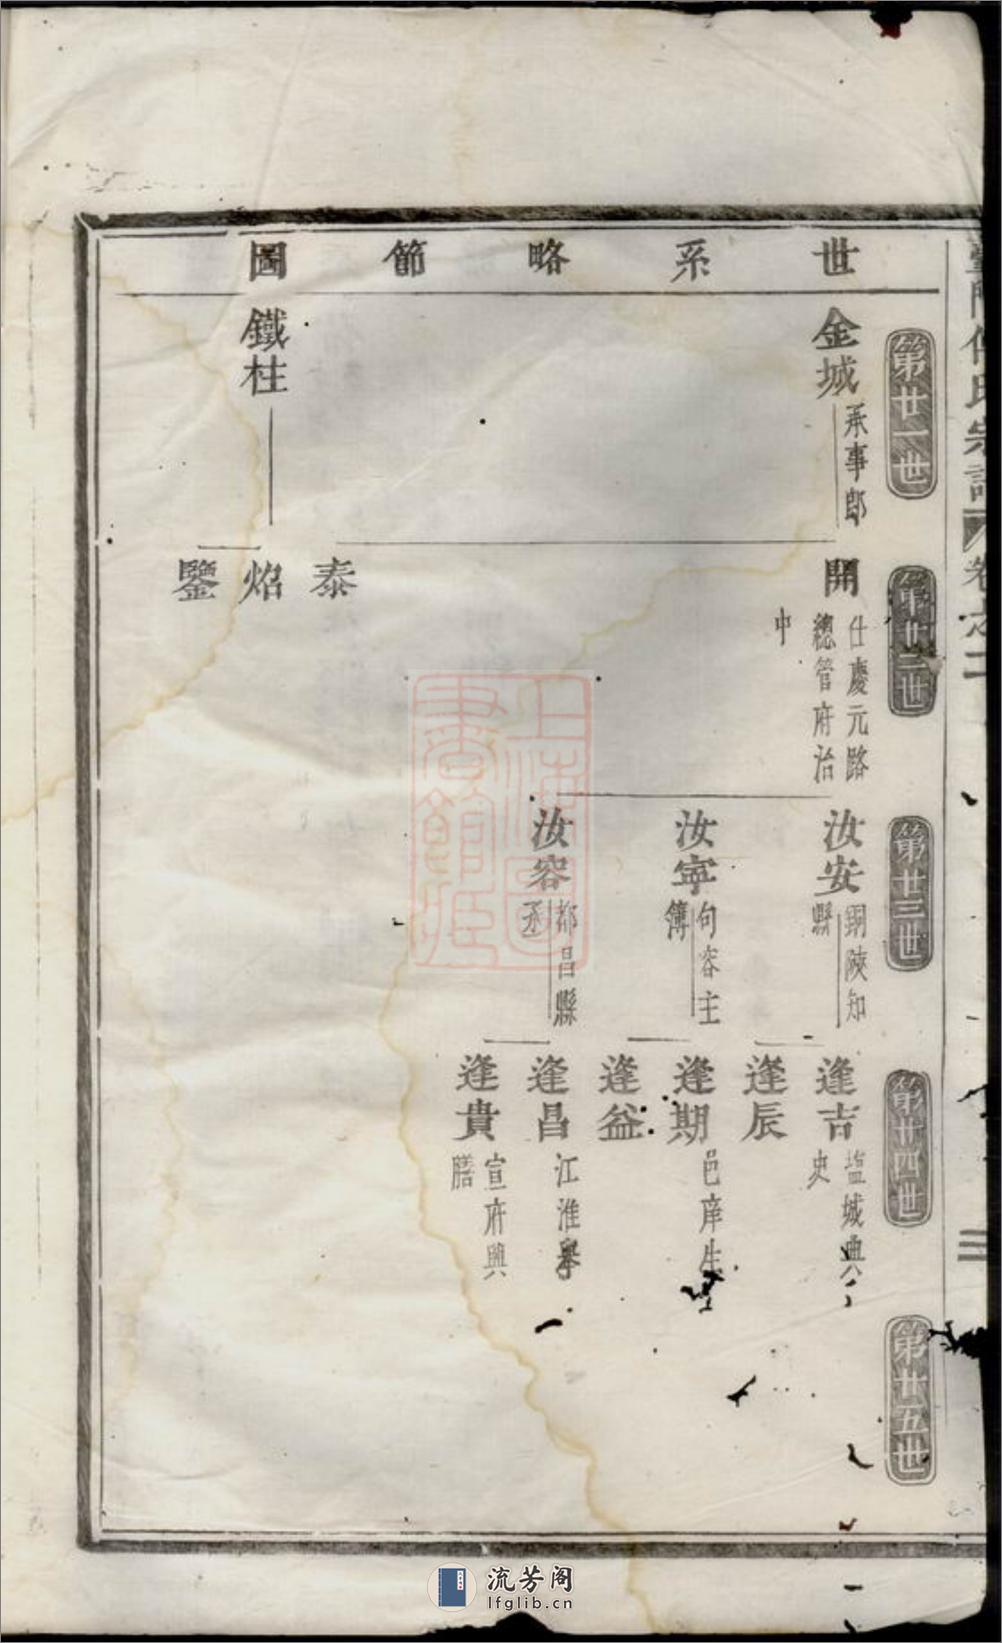 世系略節圖
氏宗譜 卷之二
三
第廿一世
金城
承事郎
鐵柱
第廿二世
開
仕慶元路
總管府治
中
泰
焰
鑒
第廿三世
汝安
銅陵知
縣
汝寧
句容主
簿
汝容
都昌縣
丞
第廿四世
逢吉
塩城典
史
逢辰
逢期
邑庠生
逢益
逢昌
江淮舉
逢貴
宣府興
膳
第廿五世
上海圖書館藏
流芳阁
lfglib.cn